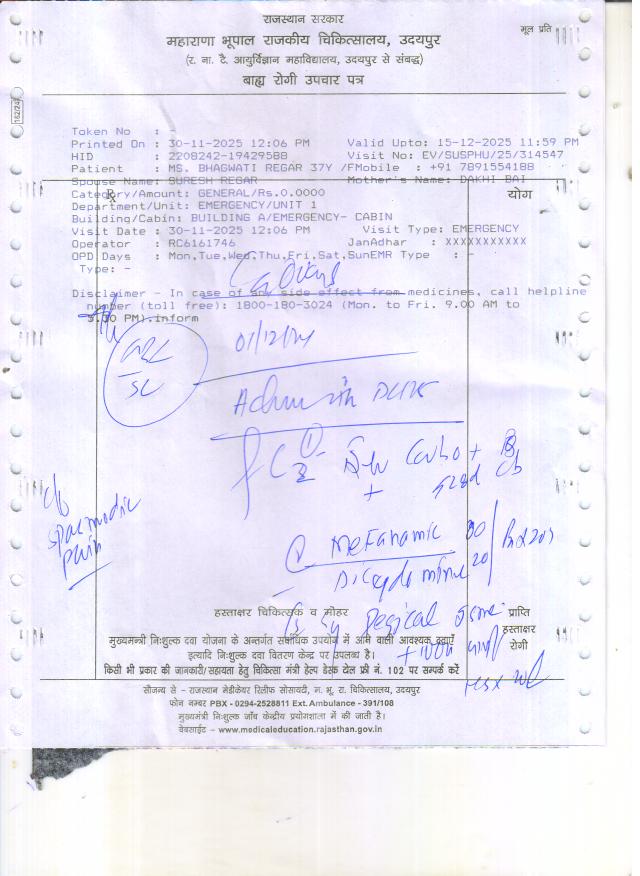 राजस्थान सरकार
मूल प्रति
महाराणा भूपाल राजकीय चिकित्सालय, उदयपुर
(र. ना. टै. आयुर्विज्ञान महाविद्यालय, उदयपुर से संबद्ध)
बाह्य रोगी उपचार पत्र
162/24
Token No : -
Printed On : 30-11-2025 12:06 PM Valid Upto: 15-12-2025 11:59 PM
HID : 2208242-19429588 Visit No: EV/SUSPHU/25/314547
Patient : MS. BHAGWATI REGAR 37Y /F Mobile : +91 7891554188
Spouse Name: SURESH REGAR Mother's Name: DAKHI BAI
Category/Amount: GENERAL/Rs.0.0000 योग
Department/Unit: EMERGENCY/UNIT 1
Building/Cabin: BUILDING A/EMERGENCY- CABIN
Visit Date : 30-11-2025 12:06 PM Visit Type: EMERGENCY
Operator : RC6161746 JanAdhar : XXXXXXXXXXX
OPD Days : Mon,Tue,Wed,Thu,Fri,Sat,Sun EMR Type : -
Type: -
Disclaimer - In case of any side effect from medicines, call helpline
number (toll free): 1800-180-3024 (Mon. to Fri. 9.00 AM to
5.00 PM).inform
c/o
spasmodic
pain
Mefanamic
Dicyclomine 20
हस्ताक्षर चिकित्सक व मोहर
प्राप्ति
हस्ताक्षर
रोगी
मुख्यमन्त्री निःशुल्क दवा योजना के अन्तर्गत सर्वाधिक उपयोग में आने वाली आवश्यक दवाएँ
इत्यादि निःशुल्क दवा वितरण केन्द्र पर उपलब्ध है।
किसी भी प्रकार की जानकारी/सहायता हेतु चिकित्सा मंत्री हेल्प डेस्क टोल फ्री नं. 102 पर सम्पर्क करें
सौजन्य से - राजस्थान मेडीकेयर रिलीफ सोसायटी, म. भू. रा. चिकित्सालय, उदयपुर
फोन नम्बर PBX - 0294-2528811 Ext. Ambulance - 391/108
मुख्यमंत्री निःशुल्क जाँच केन्द्रीय प्रयोगशाला में की जाती है।
वेबसाईट - www.medicaleducation.rajasthan.gov.in